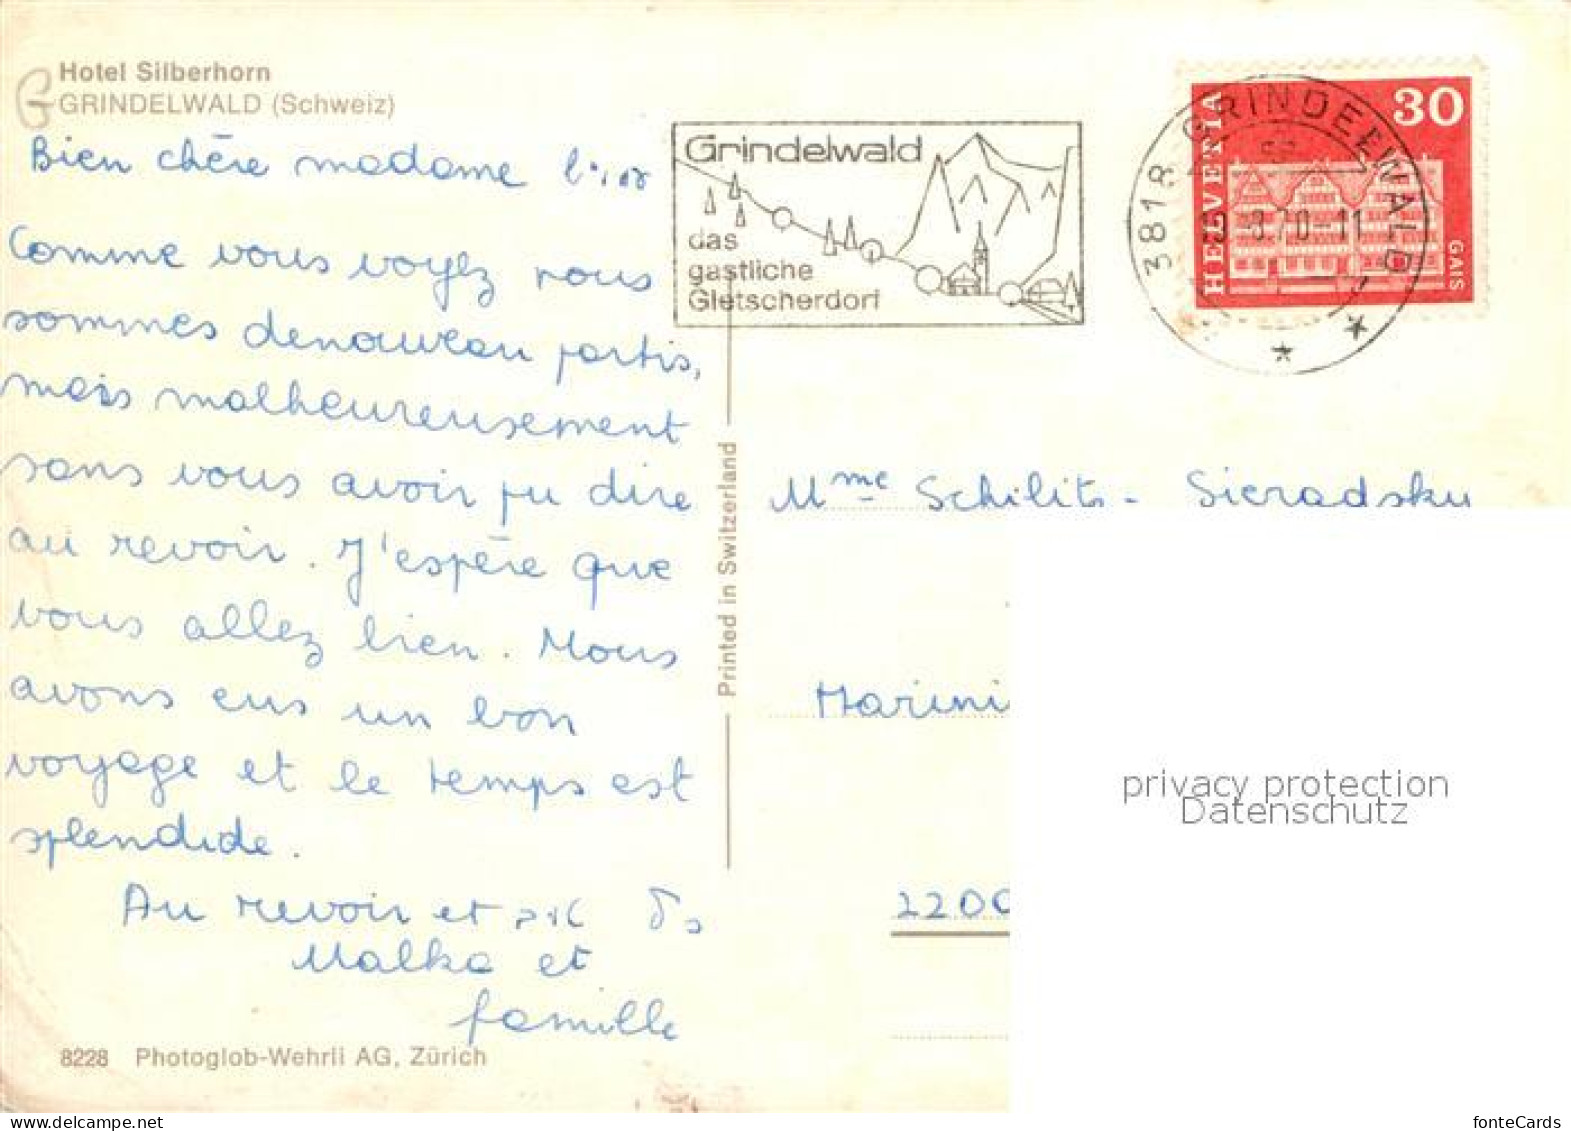 Hotel Silberhorn
GRINDELWALD (Schweiz)
Bien chère madame
Comme vous voyez nous
sommes denouveau partis,
mais malheureusement
sans vous avoir pu dire
au revoir. J'espère que
vous allez bien. Nous
avons eus un bon
voyage et le temps est
splendide.
Au revoir et
Malka et
famille
8228 Photoglob-Wehrli AG, Zürich
Printed in Switzerland
Grindelwald
das
gastliche
Gletscherdorf
3818 GRINDELWALD
-8.70-11
HELVETIA
30
GAIS
Mme Schilits - Sieradsky
Marini
2200
privacy protection
Datenschutz
fonteCards